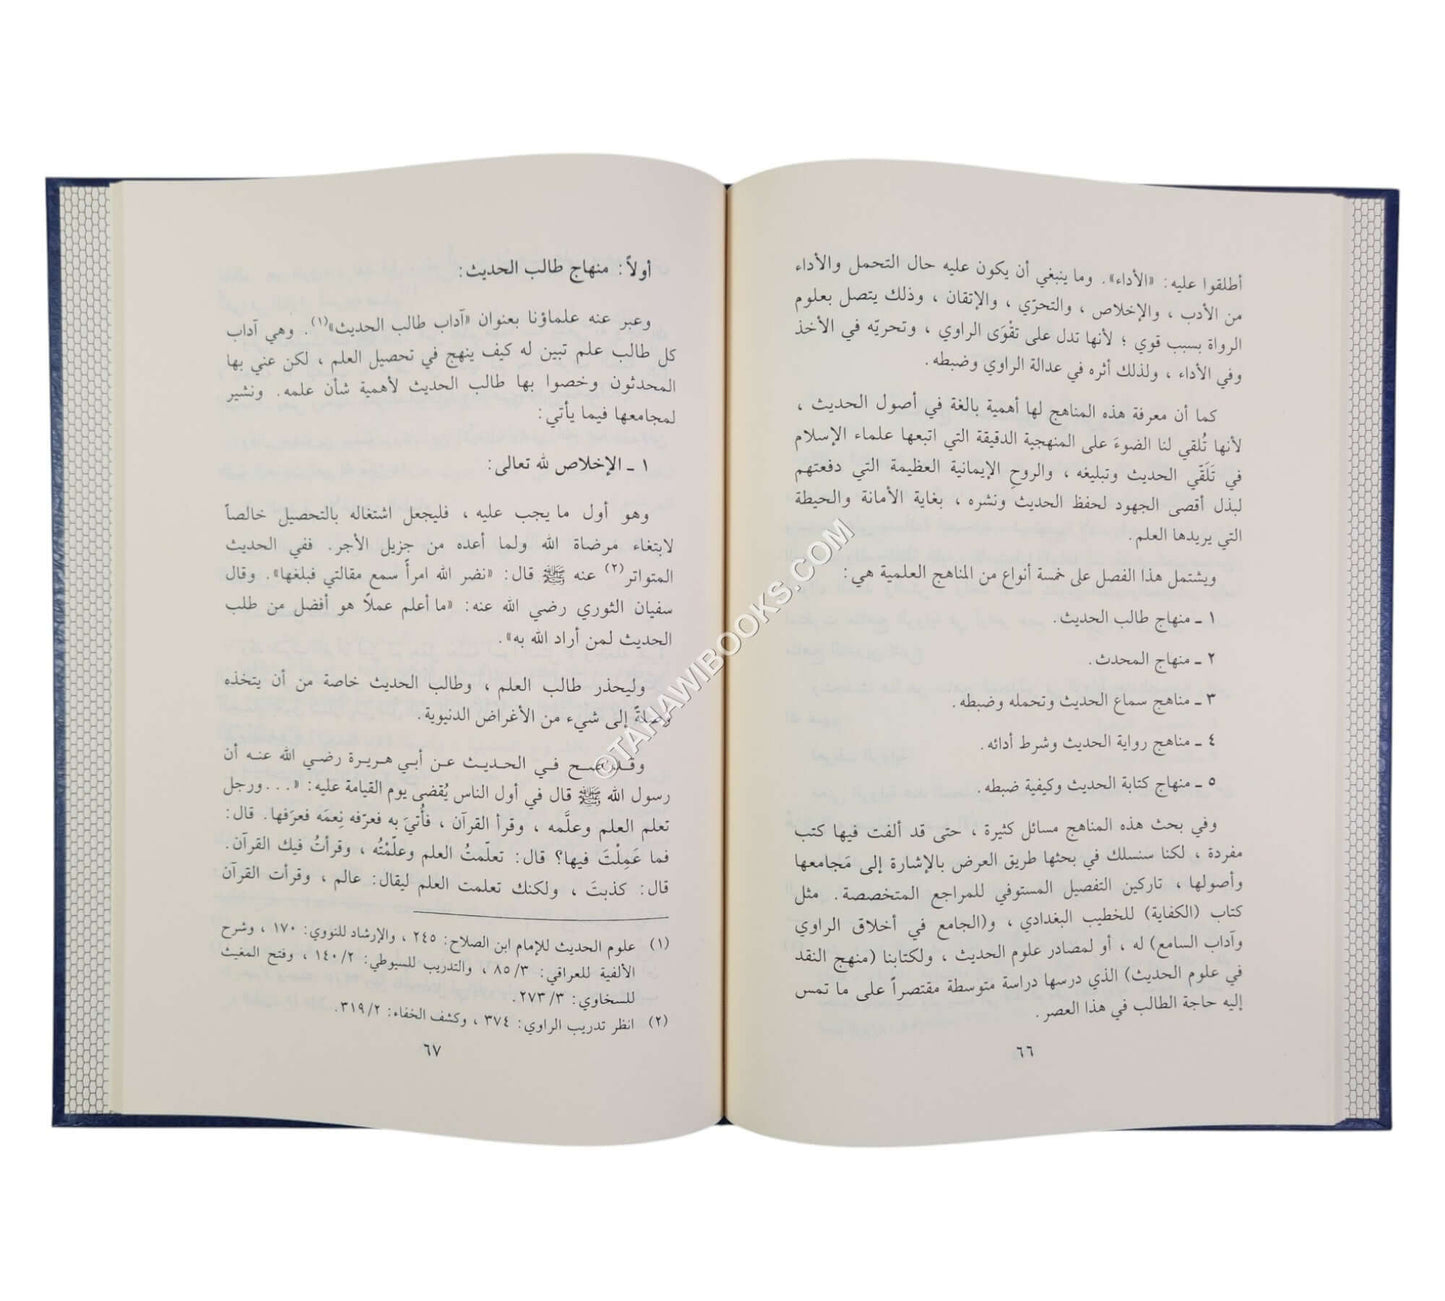 أطلقوا عليه: «الأداء». وما ينبغي أن يكون عليه حال التحمل والأداء
من الأدب ، والإخلاص ، والتحرّي ، والإتقان ، وذلك يتصل بعلوم
الرواة بسبب قوي ؛ لأنها تدل على تقْوَى الراوي ، وتحريّه في الأخذ
وفي الأداء ، ولذلك أثره في عدالة الراوي وضبطه.
كما أن معرفة هذه المناهج لها أهمية بالغة في أصول الحديث ،
لأنها تُلقي لنا الضوءَ على المنهجية الدقيقة التي اتبعها علماء الإسلام
في تَلَقّي الحديث وتبليغه ، والروحِ الإيمانية العظيمة التي دفعتهم
لبذل أقصى الجهود لحفظ الحديث ونشره ، بغاية الأمانة والحيطة
التي يريدها العلم.
ويشتمل هذا الفصل على خمسة أنواع من المناهج العلمية هي:
١ ـ منهاج طالب الحديث.
٢ ـ منهاج المحدث.
٣ ـ مناهج سماع الحديث وتحمله وضبطه.
٤ ـ مناهج رواية الحديث وشرط أدائه.
٥ ـ منهاج كتابة الحديث وكيفية ضبطه.
وفي بحث هذه المناهج مسائل كثيرة ، حتى قد ألفت فيها كتب
مفردة ، لكنا سنسلك في بحثها طريق العرض بالإشارة إلى مَجامعها
وأصولها ، تاركين التفصيل المستوفي للمراجع المتخصصة. مثل
كتاب (الكفاية) للخطيب البغدادي ، و(الجامع في أخلاق الراوي
وآداب السامع) له ، أو لمصادر علوم الحديث ، ولكتابنا (منهج النقد
في علوم الحديث) الذي درسها دراسة متوسطة مقتصراً على ما تمس
إليه حاجة الطالب في هذا العصر.
٦٦
أولاً: منهاج طالب الحديث:
وعبر عنه علماؤنا بعنوان «آداب طالب الحديث»(١). وهي آداب
كل طالب علم تبين له كيف ينهج في تحصيل العلم ، لكن عني بها
المحدثون وخصوا بها طالب الحديث لأهمية شأن علمه. ونشير
لمجامعها فيما يأتي:
١ ـ الإخلاص لله تعالى:
وهو أول ما يجب عليه ، فليجعل اشتغاله بالتحصيل خالصاً
لابتغاء مرضاة الله ولما أعده من جزيل الأجر. ففي الحديث
المتواتر(٢) عنه ﷺ قال: «نضر الله امرأً سمع مقالتي فبلغها». وقال
سفيان الثوري رضي الله عنه: «ما أعلم عملاً هو أفضل من طلب
الحديث لمن أراد الله به».
وليحذر طالب العلم ، وطالب الحديث خاصة من أن يتخذه
وصلةً إلى شيء من الأغراض الدنيوية.
وقد صح في الحديث عن أبي هريرة رضي الله عنه أن
رسول الله ﷺ قال في أول الناس يُقضى يوم القيامة عليه: «...ورجل
تعلم العلم وعلَّمه ، وقرأ القرآن ، فأُتيَ به فعرّفه نِعمَه فعرَفها. قال:
فما عَمِلْتَ فيها؟ قال: تعلّمتُ العلم وعلّمْتُه ، وقرأتُ فيك القرآن.
قال: كذبتَ ، ولكنك تعلمت العلم ليقال: عالم ، وقرأت القرآن
(١) علوم الحديث للإمام ابن الصلاح: ٢٤٥ ، والإرشاد للنووي: ١٧٠ ، وشرح
الألفية للعراقي: ٨٥/٣ ، والتدريب للسيوطي: ١٤٠/٢ ، وفتح المغيث
للسخاوي: ٢٧٣/٣.
(٢) انظر تدريب الراوي: ٣٧٤ ، وكشف الخفاء: ٣١٩/٢.
٦٧
©TAHAWIBOOKS.COM